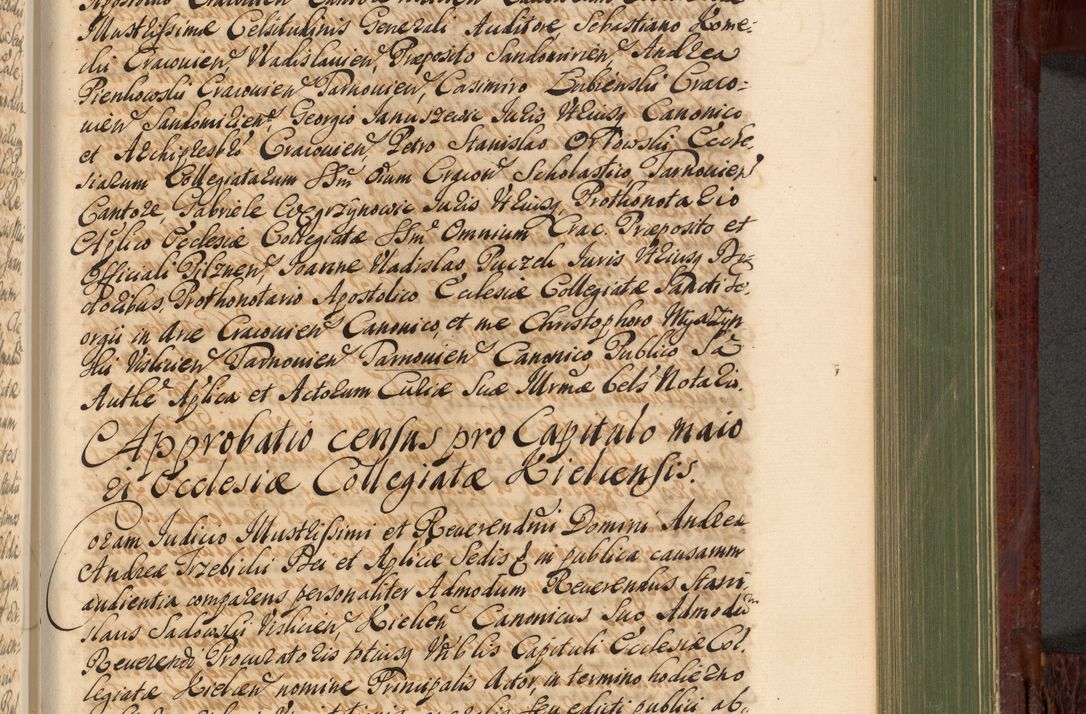 Illustrissimæ Celsitudinis Generali Auditore, Sebastiano Kome-
cki Cracouien, Vladislauien, Præposito Sandomirien, Andrea
Pienkowski Cracouien Tarnouien, Casimiro Łubienski Craco-
uien Sandomirien, Georgio Januszewic Juris Vtriusq Canonico
et Archipresb. Cracouien, Petro Stanislao Orłowski Eccle-
siarum Collegiatarum SSm. Oium Cracou Scholastico, Tarnouien
Cantore, Gabriele Juris Vtriusq, Prothonotario
Aplico Ecclesiæ Collegiatæ SSm. Omnium Crac. Præposito et
Officiali Pilznen, Joanne Vladislao Juris Vtriusq Do-
ctoribus, Prothonotario Apostolico Ecclesiæ Collegiatæ Sancti Ge-
orgii in Arce Cracouien Canonico, et me Christophoro
ski Vislicien Tarnouien Tarnouien Canonico Publico Sa
Authe Aplica et Actorum Curiæ Suæ Illrmæ Cels Notario.
Approbatio census pro Capitulo maio
ri Ecclesiæ Collegiatæ Kielcensis.
Coram Judicio Illustrissimi et Reuerendmi Domini Andrea
Andreæ Trzebicki Dei et Aplicæ Sedis in publica causarum
audientia comparens personaliter Admodum Reuerendus Stani
slaus Sadowski Vislicien, Kielcen Canonicus Suo Admodu
Reuerendi Procuratoris Capituli Ecclesiæ Col.
legiatæ Kielcen nomine Principalis Actor in termino hodierno
seu edicti publici ab-